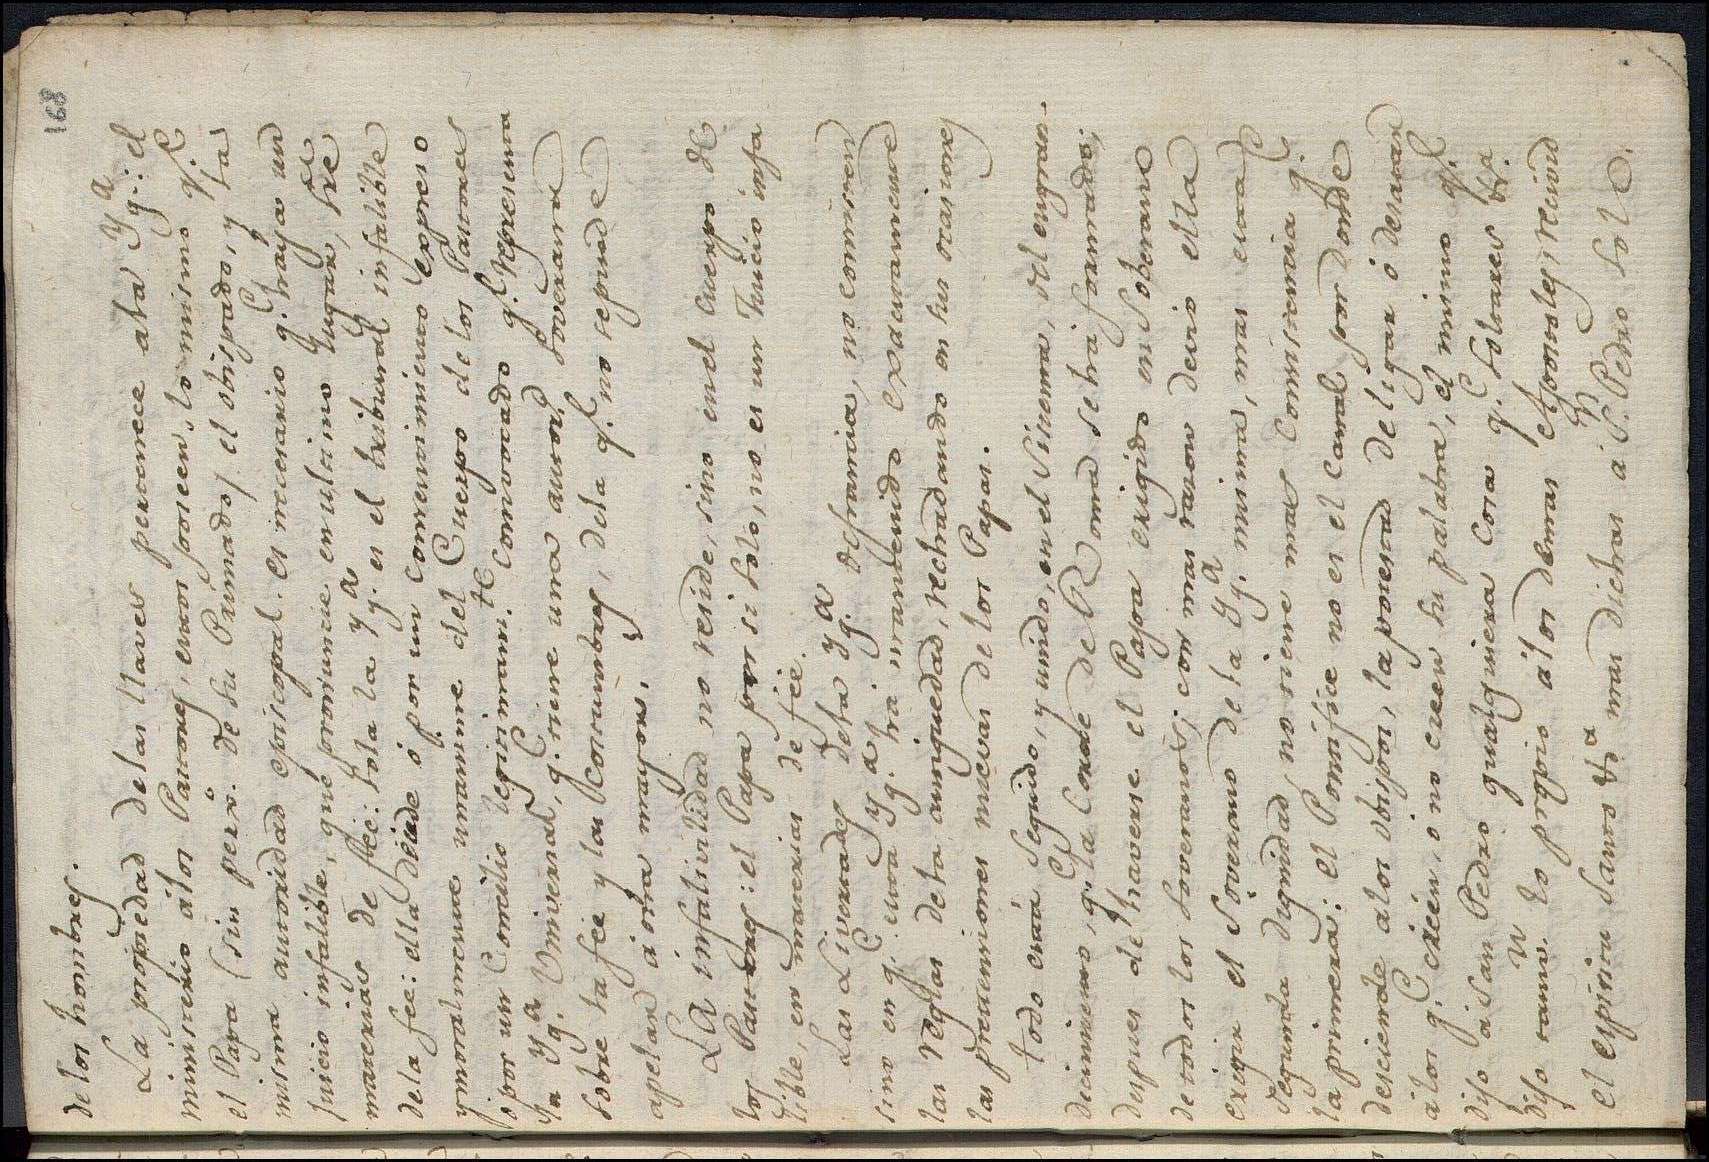 168
de los hombres.
La propiedad de las llaves pertenece ala Yg.ª: el
ministerio álos Pastores, estos poseen, lo mismo q.e
el Papa (sin perx.º de su Primado) el obispado, y la
misma autoridad episcopal. es necesario q.e haya un
Juicio infalible, qué pronuncie en ultimo lugar, sre
materias de feé: sola la Yg.ª es el tribunal infalible
dela feé: ella decide ó por un consentimiento expreso
ymoralmente unanime del Cuerpo delos Pastores
o por un Concilio legitimam.te Convocado q.e representa
la Yg.ª Universal, q.e tiene una autor.d Soverana
sobre la feé y las Costumbres, dela q.e no sepuede
apelar á otra mayor.
La infalividad no reside, sino en el cuerpo de
los Pastores: el Papa por si solo, no es un Juicio infa
lible, en materias de feé.
Las Livertades dela Yg.ª de francia, no consisten
sino en q.e esta Yg.ª ha mantenido exactamente
las reglas dela antiguedad, rechazando en sus ocasiones
las pretensiones nuevas de los Papas.
todo está seguido, y unido, en el Sistema, del engran-
decimiento, q.e la Corte de Roma se ha formado;
despues de haverse el Papa erigido en Soberano
de todos los Soveranos; con mas razon devio ella
exigir el Soverano dela Yg.ª misma, mas esta
segunda dignidad, no tiene mas Consistencia q.e
la primera: el Pontifice no es el Canal por donde
desciende alos obispos, la potestad de ligar ó desatar
álos q.e creén, o no creen su palabra, el mismo q.e
dijo á San Pedro qualquiera Cosa q.e soltares &.a
dijo tamv.n lo propio álos demas Apostoles; recivid
el espiritu Santo &.a mas dichas á S. Pedro solo.